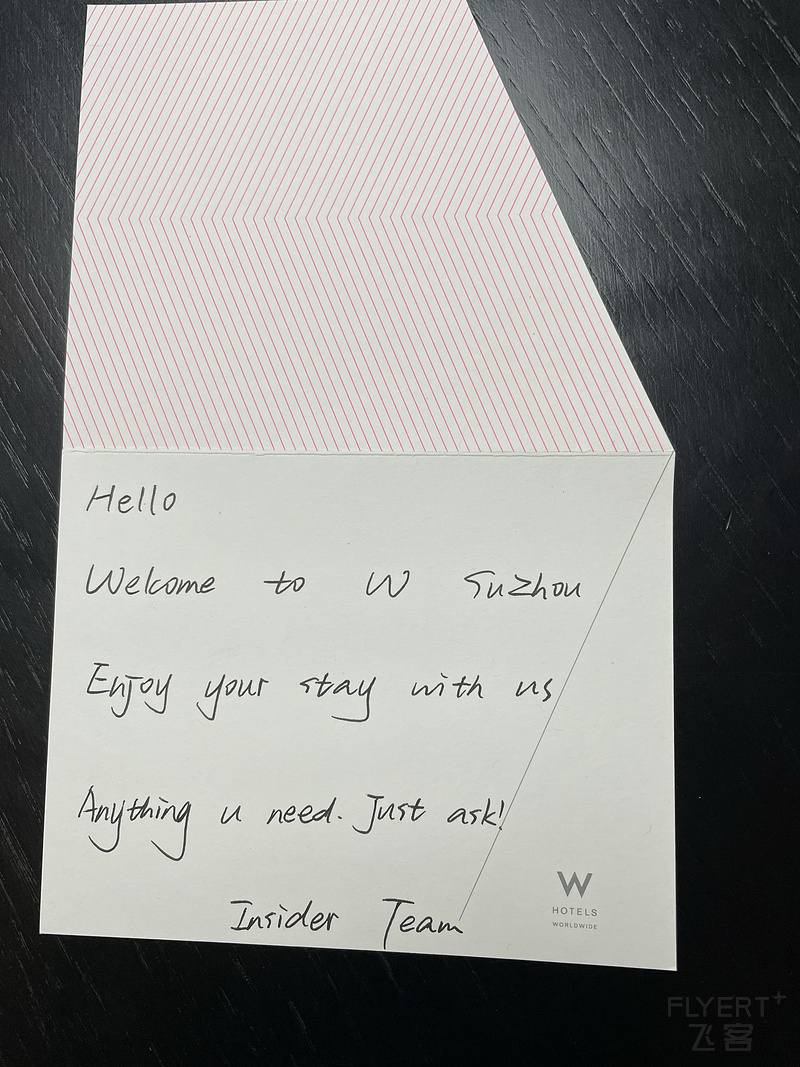 Hello
Welcome to W Suzhou
Enjoy your stay with us
Anything u need. Just ask!
Insider Team
W
HOTELS
WORLDWIDE
FLYERT+
飞客